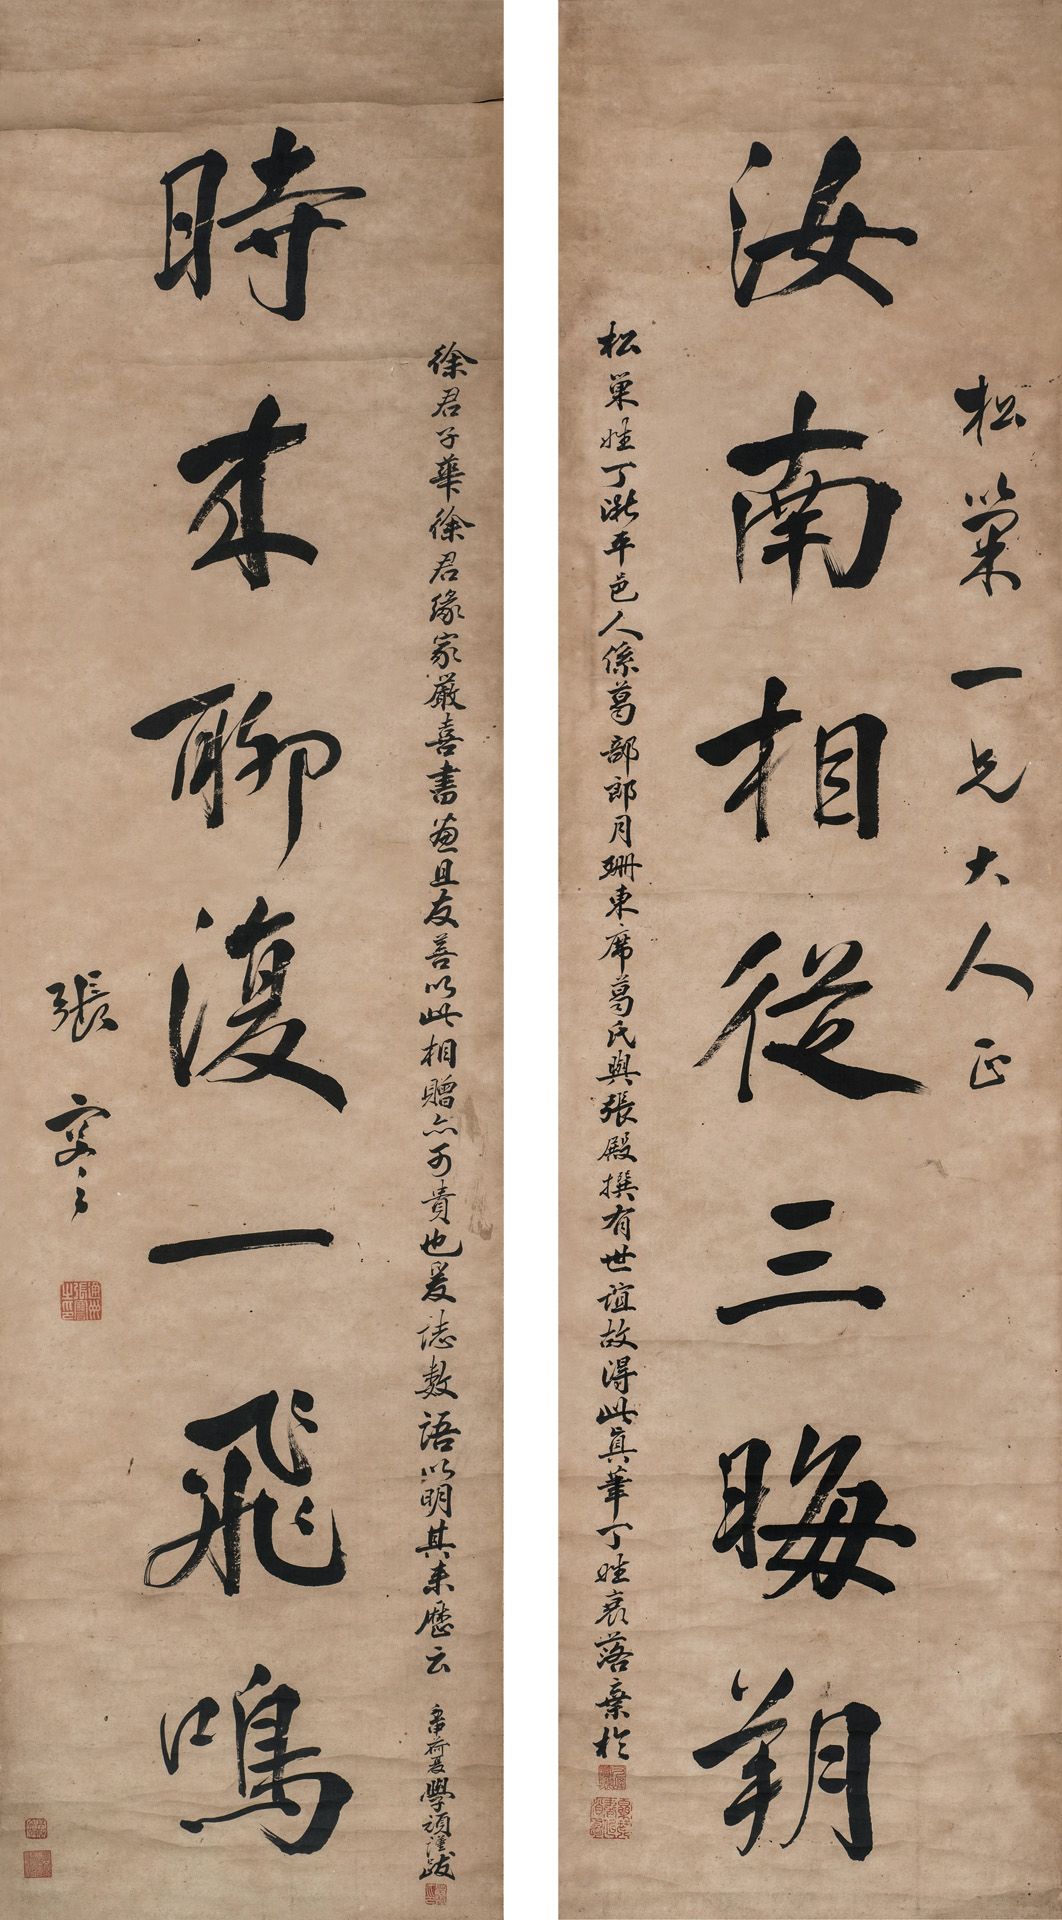 松巢一兄大人正
汝南相從三晦朔
松巢姓丁浙平邑人係葛部郎月珊東席葛氏與張殿撰有世誼故得此真筆丁姓衰落棄於
徐君子華徐君緣家嚴喜書畫且友善以此相贈亦可貴也爰誌數語以明其来歷云
荷夏學頑謹跋
時来聊復一飛鳴
張謇